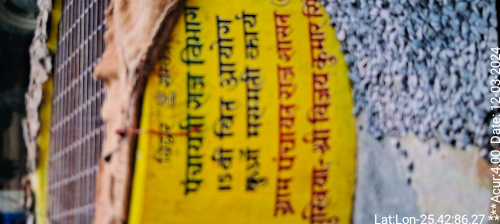 पंचायती राज विभाग
15 वीं वित आयोग
कुआँ मरम्मती कार्य
ग्राम पंचायत राज शासन
मुखिया- श्री विजय कुमार सिं
Lat:Lon-25.42:86.27
***Acur:4.00 Date: 12-03-2024